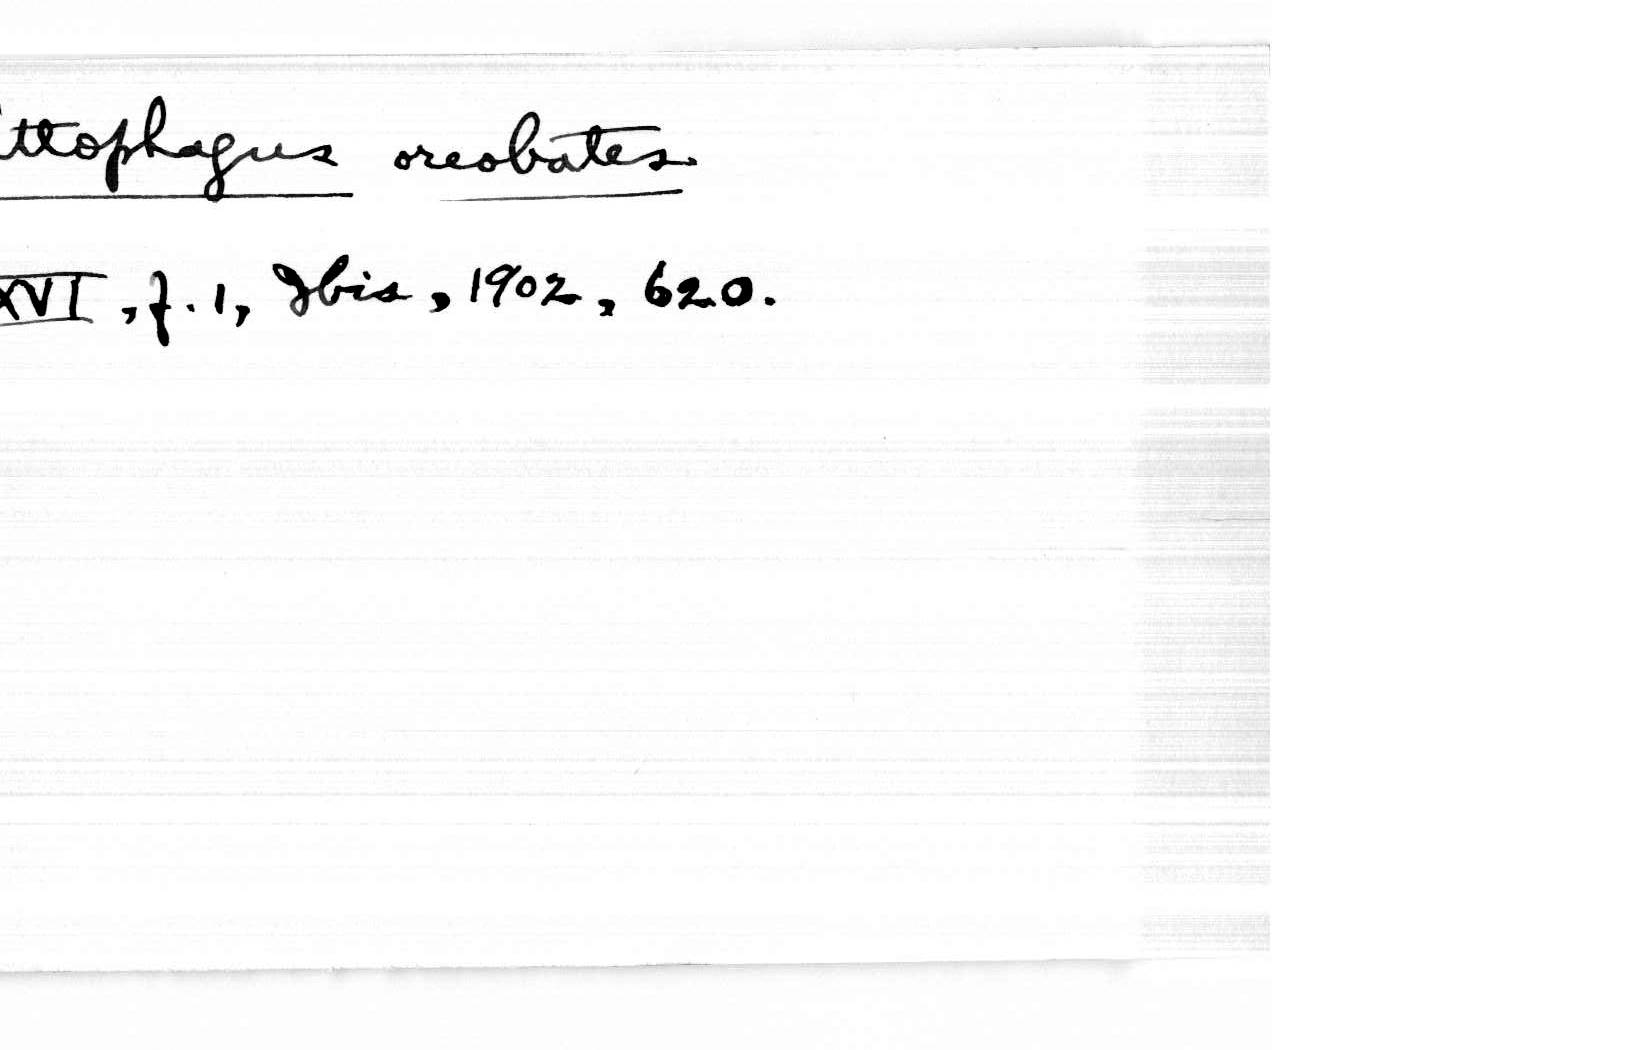 ittophagus oreobates.
XVI, f. 1, Ibis, 1902, 620.